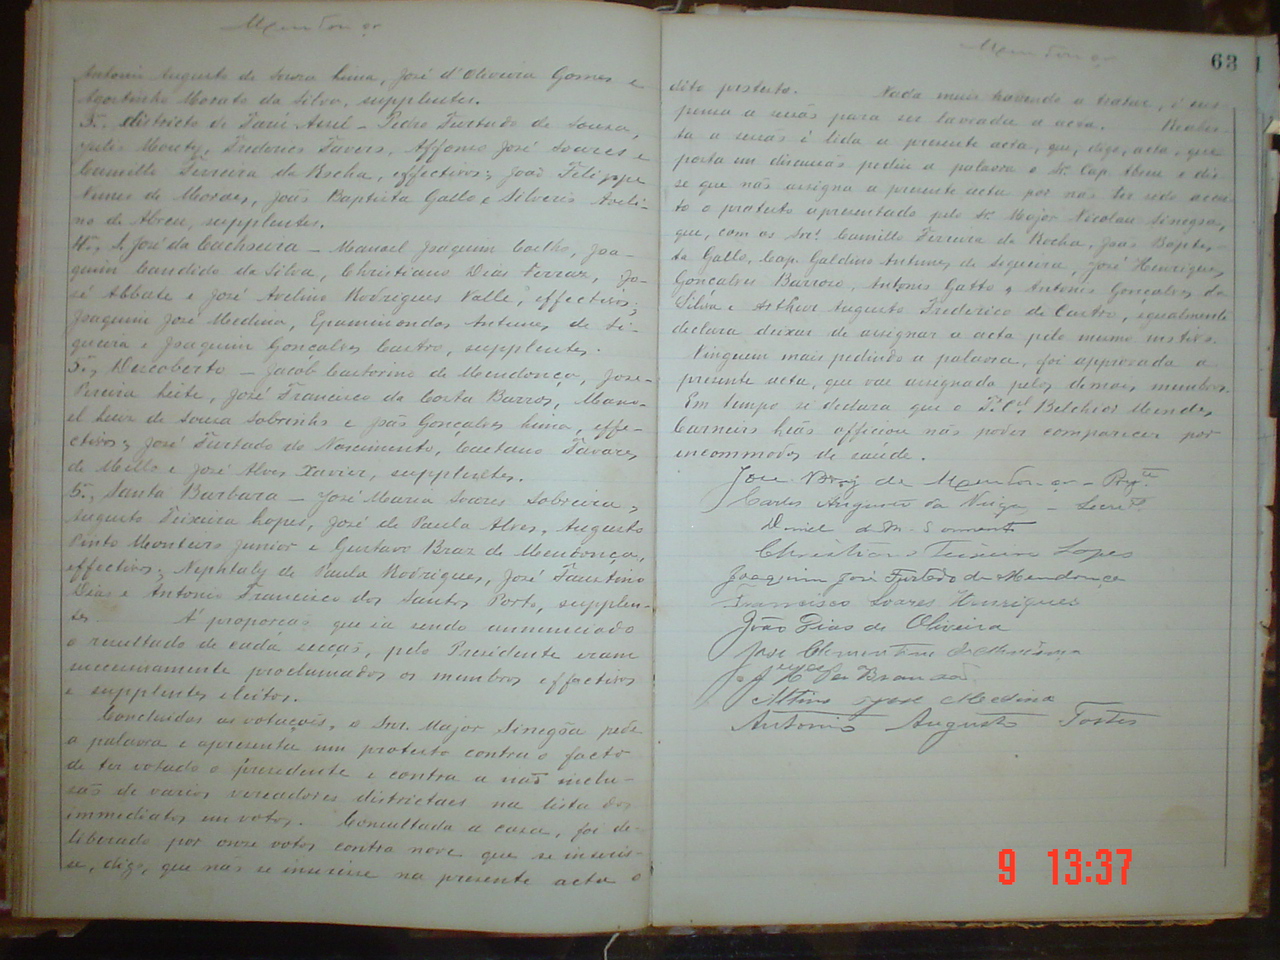 Mendonça
Antonio Augusto de Souza Lima, José d'Oliveira Gomes e
Agostinho Morato da Silva, supplentes.
3º. districto de Taru Assú - Pedro Furtado de Souza,
Felix Monty, Frederico Tavora, Affonso José Soares e
Camillo Ferreira da Rocha, effectivos; João Filippe
Nunes de Moraes, João Baptista Gallo e Silverio Aveli-
no de Abreu, supplentes.
4º. S. José da Cachoeira - Manoel Joaquim Coelho, Joa-
quim Candido da Silva, Christiano Dias Ferraz, Jo-
sé Abbate e José Avelino Rodrigues Valle, effectivos;
Joaquim José Medina, Epaminondas Antunes de Si-
queira e Joaquim Gonçalves Castro, supplentes.
5º, Descoberto - Jacob Cactorino de Mendonça, José
Pereira Leite, José Francisco da Costa Barros, Mano-
el Luiz de Souza Sobrinho e João Gonçalves Lima, effe-
ctivos; José Furtado do Nascimento, Caetano Tavares
de Mello e José Alves Xavier, supplentes.
5º, Santa Barbara - José Maria Soares Sobreira,
Augusto Teixeira Lopes, José de Paula Alves, Augusto
Pinto Monteiro Junior e Gustavo Braz de Mendonça,
effectivos; Nephtaly de Paula Rodrigues, José Faustino
Dias e Antonio Francisco dos Santos Porto, supplen-
tes. Á proporção que ia sendo annunciado
o resultado de cada secção, pelo Presidente eram
successivamente proclamados os membros effectivos
e supplentes eleitos.
Concluidas as votações, o Snr. Major Sinegra pede
a palavra e apresenta um protesto contra o facto
de ter votado o presidente e contra a não inclu-
são de varios vereadores districtaes na lista dos
immediatos em votos. Consultada a casa, foi de-
liberado por onze votos contra nove que se inseris-
se, digo, que não se inserisse na presente acta o
Mendonça
63
dito protesto. Nada mais havendo a tratar, é sus-
pensa a sessão para ser lavrada a acta. Reaber-
ta a sessão é lida a presente acta, que, digo, acta, que
posta em discussão pediu a palavra o Sr. Cap. Abreu e dis-
se que não assigna a presente acta por não ter sido accei-
to o protesto apresentado pelo Sr. Major Nicolau Sinegra,
que, com os Snrs. Camillo Ferreira da Rocha, João Baptis-
ta Gallo, Cap. Galdino Antunes de Siqueira, José Henriques
Gonçalves Barroso, Antonio Gatto, Antonio Gonçalves da
Silva e Arthur Augusto Frederico de Castro, egualmente
declara deixar de assignar a acta pelo mesmo motivo.
Ninguem mais pedindo a palavra, foi approvada a
presente acta, que vae assignada pelos demais membros.
Em tempo se declara que o T. Cel. Belchior Mendes
Carneiro Leão officiou não poder comparecer por
incommodos de saúde.
José Braz de Mendonça - Presid.te
Carlos Augusto da Veiga - Secret.
Daniel de M. Sarmento
Christiano Teixeira Lopes
Joaquim José Furtado de Mendonça
Francisco Soares Henriques
João Dias de Oliveira
José Clementino
Brandão
José Medina
Antonio Augusto Tostes
9 13:37